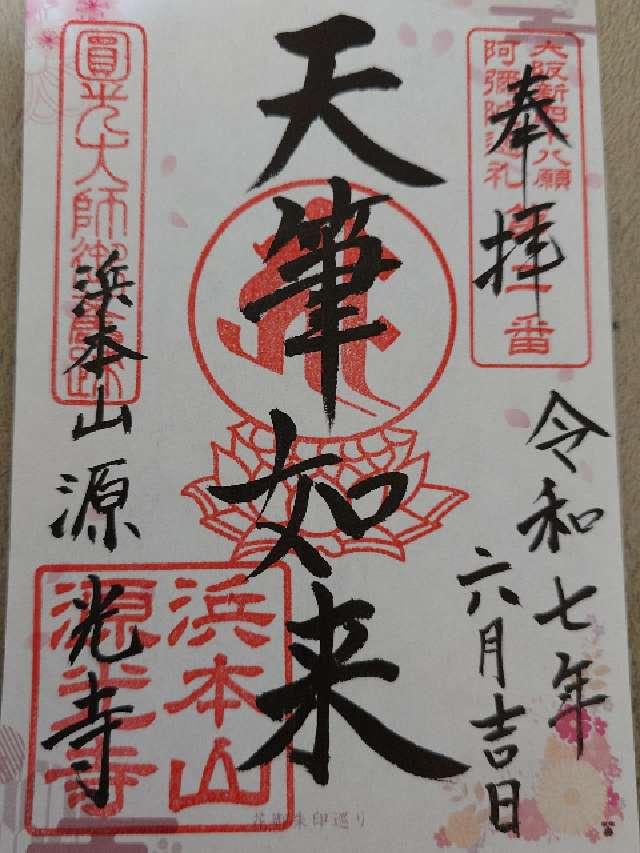 奉拝
大阪新四十八願
阿彌陀巡礼
第二番
令和七年
六月吉日
天筆如来
圓光大師御舊跡
浜本山源光寺
浜本山
源光寺
花御朱印巡り